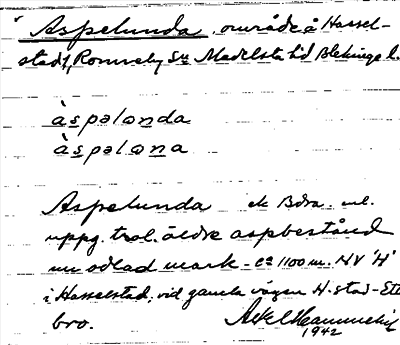 Aspelunda, område å Hassel-
stad, Ronneby Sn Medelsta hd Blekinge l.
àspəlonda
àspəlona
Aspelunda ek Bdra. enl.
uppg. trol. äldre aspbestånd
nu odlad mark - ca 1100 m. NV 'H'
i Hasselstad, vid gamla vägen H-stad-Ette
bro.
1942